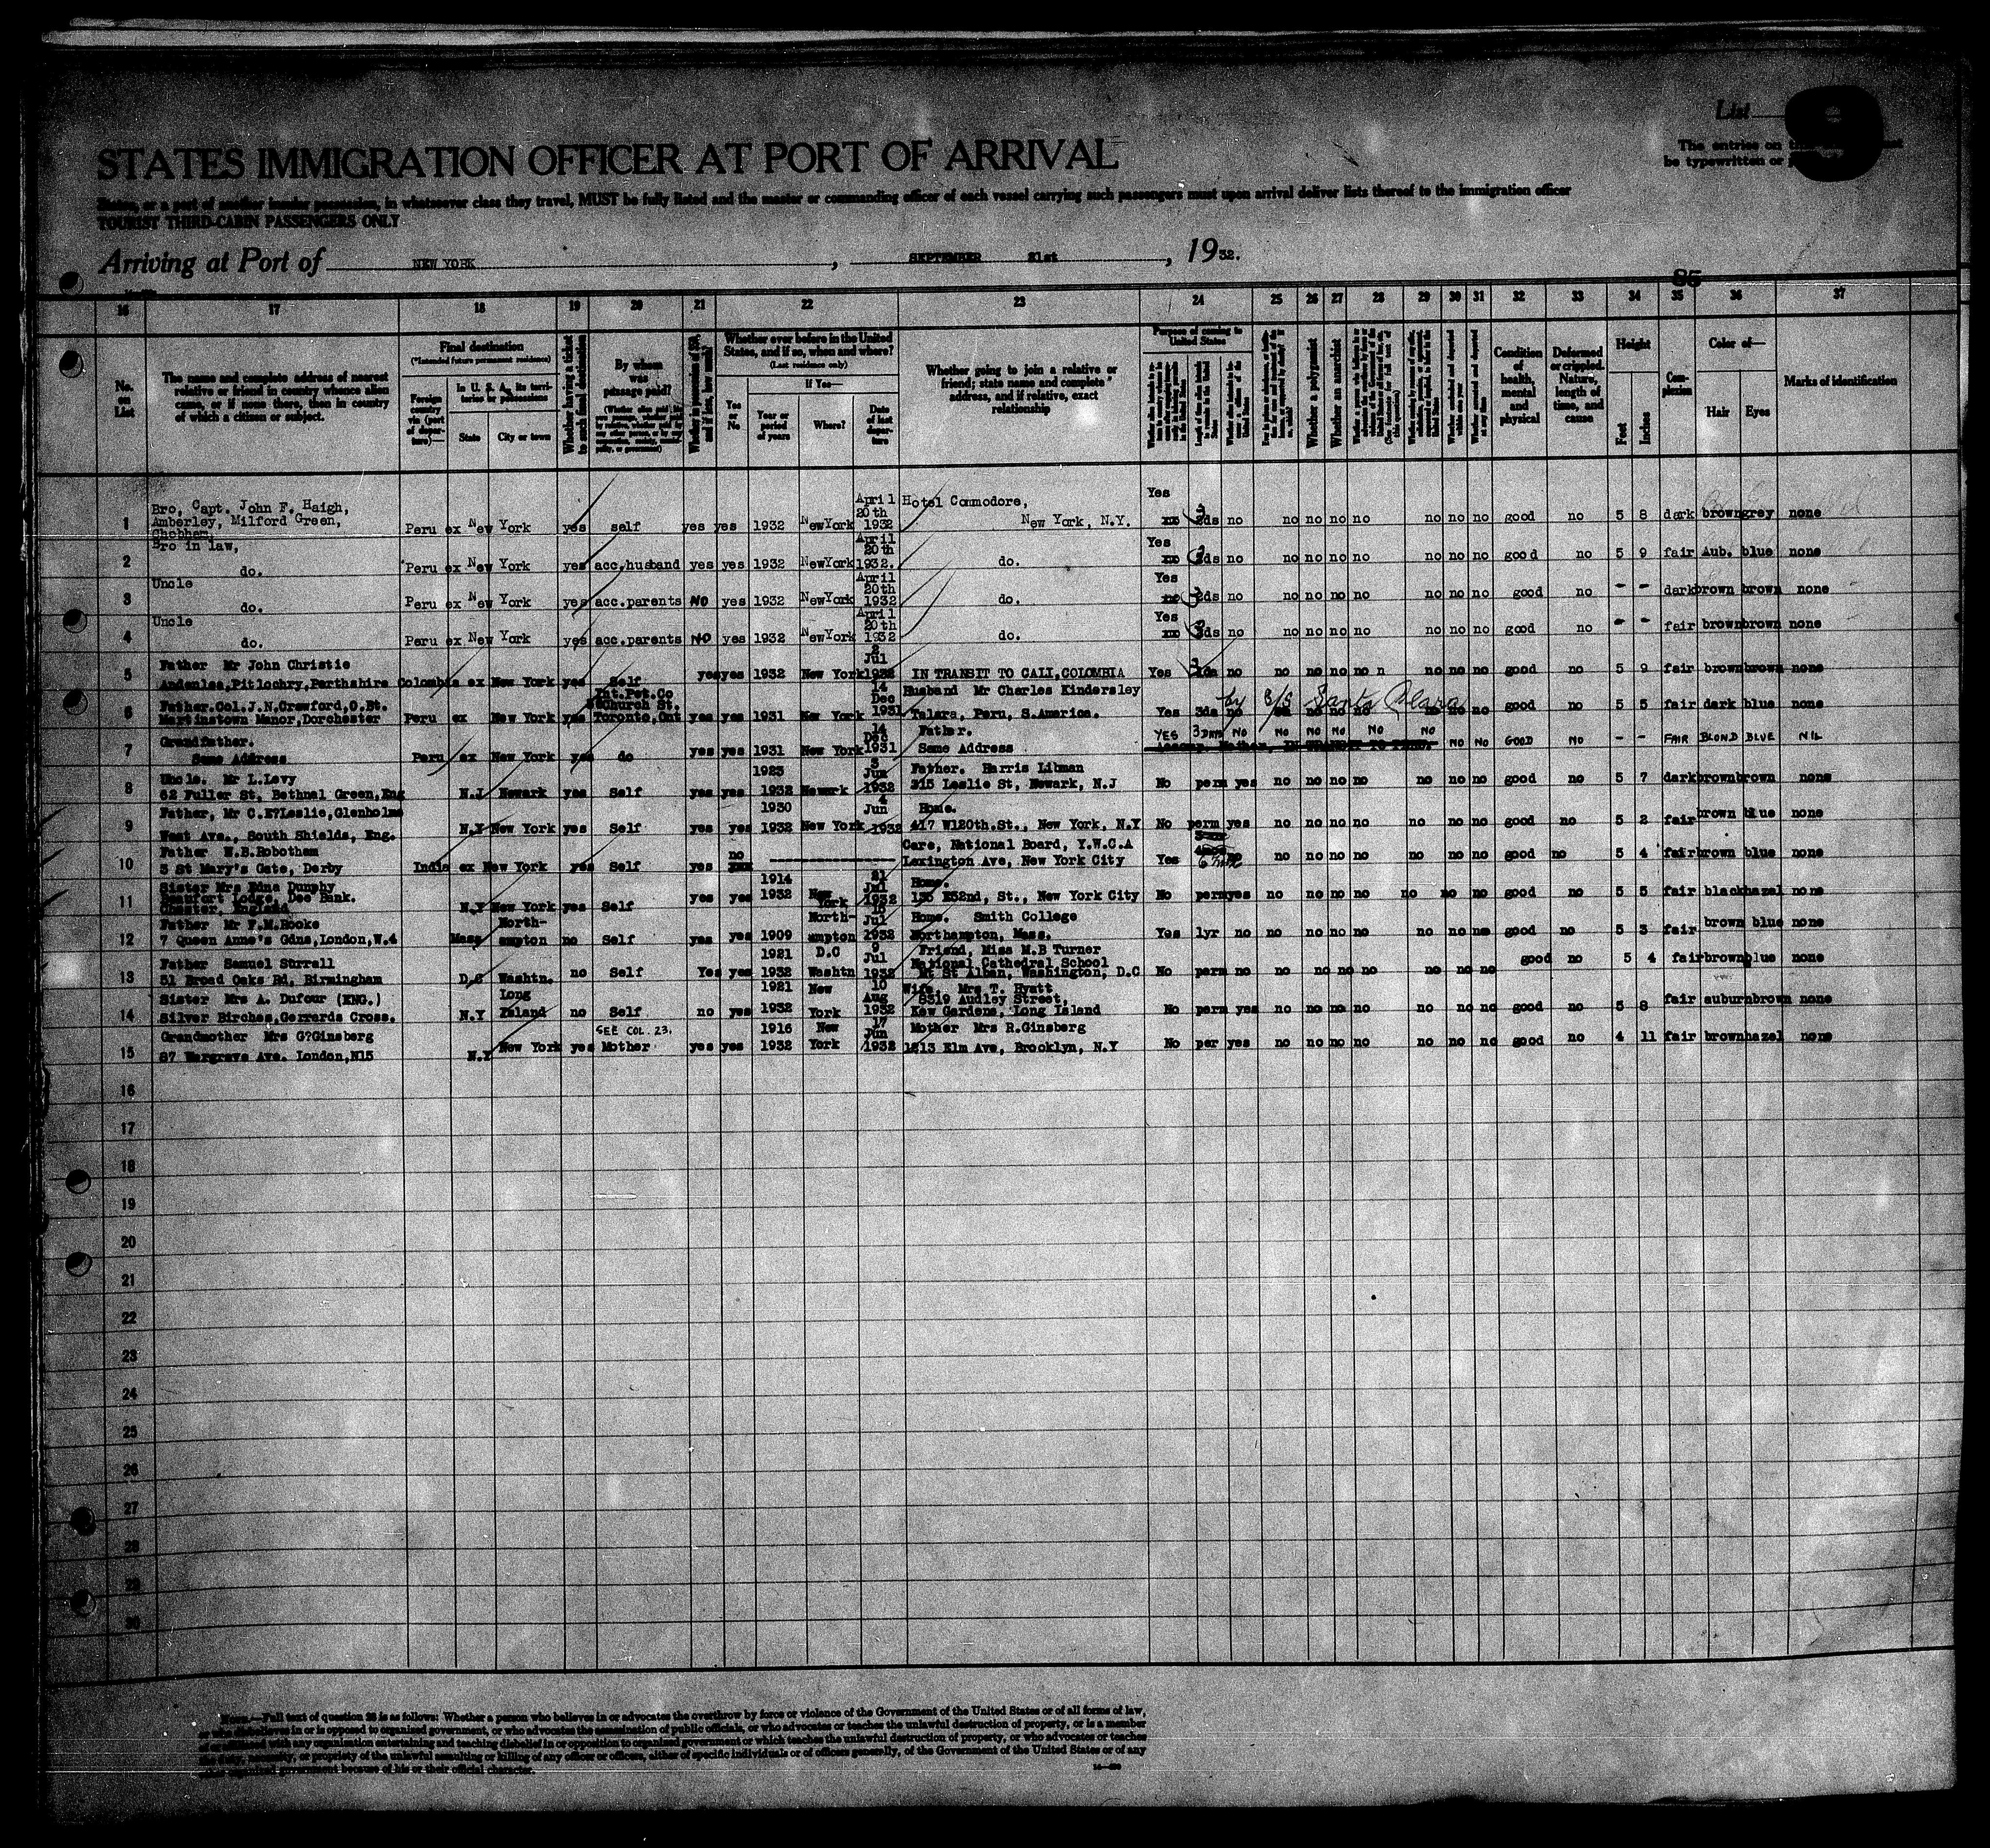 List 9
The entries on
be typewritten or
STATES IMMIGRATION OFFICER AT PORT OF ARRIVAL
States, or a port of another insular possession, in whatsoever class they travel, MUST be fully listed and the master or commanding officer of each vessel carrying such passengers must upon arrival deliver lists thereof to the immigration officer
TOURIST THIRD-CABIN PASSENGERS ONLY
Arriving at Port of NEW YORK , SEPTEMBER 21st , 1932.
85
16 17 18 19 20 21 22 23 24 25 26 27 28 29 30 31 32 33 34 35 36 37
No. on List
The name and complete address of nearest relative or friend in country whence alien came, or if none there, then in country of which a citizen or subject.
Final destination
(*Intended future permanent residence)
Foreign country via (port of departure)—
In U. S. A., its territories or possessions
State City or town
Whether having a ticket to such final destination
By whom was passage paid?
Whether in possession of $50, and if less, how much?
Whether ever before in the United States, and if so, when and where?
(Last residence only)
Yes or No
If Yes—
Year or period of years Where? Date of last departure
Whether going to join a relative or friend; state name and complete address, and if relative, exact relationship
Purpose of coming to United States
Whether a polygamist
Whether an anarchist
Condition of health, mental and physical
Deformed or crippled. Nature, length of time, and cause
Height
Feet Inches
Complexion
Color of—
Hair Eyes
Marks of identification
1 Bro, Capt. John F. Haigh, Amberley, Milford Green, Chobham. Peru ex New York yes self yes yes 1932 New York April 20th 1932 Hotel Commodore, New York, N.Y. Yes 3ds no no no no no no no no good no 5 8 dark brown grey none
2 Bro in law, do. Peru ex New York yes acc.husband yes yes 1932 New York April 20th 1932. do. Yes 3ds no no no no no no no no good no 5 9 fair Aub. blue none
3 Uncle do. Peru ex New York yes acc.parents NO yes 1932 New York April 20th 1932 do. Yes 3ds no no no no no no no no good no - - dark brown brown none
4 Uncle do. Peru ex New York yes acc.parents NO yes 1932 New York April 20th 1932 do. Yes 3ds no no no no no no no no good no - - fair brown brown none
5 Father Mr John Christie Andenlea,Pitlochry,Perthshire Colombia ex New York yes Self yes yes 1932 New York 2 Jul 1932 IN TRANSIT TO CALI,COLOMBIA Yes no no no no no n no no no good no 5 9 fair brown brown none
by S/S Santa Clara
6 Father.Col.J.N.Crawford,O.Bt. Martinstown Manor,Dorchester Peru ex New York yes Int.Pet.Co 56Church St. Toronto,Ont yes yes 1931 New York 14 Dec 1931 Husband Mr Charles Kindersley Talara, Peru, S.America. Yes 3ds no no no no no no no no good no 5 5 fair dark blue none
7 Grandfather. Same Address Peru ex New York yes do yes yes 1931 New York 14 Dec 1931 Father. Same Address YES 3 DAYS NO NO NO NO NO NO NO NO GOOD NO - - FAIR BLOND BLUE NIL
8 Uncle. Mr L.Levy 62 Fuller St, Bethnal Green,Eng N.J Newark yes Self yes yes 1923 1932 Newark 3 Jun 1932 Father. Harris Libman 315 Leslie St, Newark, N.J No perm yes no no no no no no no good no 5 7 dark brown brown none
9 Father, Mr C.E?Leslie,Glenholme West Ave., South Shields, Eng. N.Y New York yes Self yes yes 1930 1932 New York 4 Jun 1932 Home. 417 W120th.St., New York, N.Y No perm yes no no no no no no no good no 5 2 fair brown blue none
10 Father W.B.Robotham 5 St Mary's Gate, Derby India ex New York yes Self yes no Care, National Board, Y.W.C.A Lexington Ave, New York City Yes no no no no no no no no good no 5 4 fair brown blue none
11 Sister Mrs Edna Dunphy Beaufort Lodge, Dee Bank. Chester, England N.Y New York yes Self yes yes 1914 1932 New York 21 Jul 1932 Home. 135 E52nd, St., New York City No perm yes no no no no no no no good no 5 5 fair black hazel none
12 Father Mr F.M.Rooke 7 Queen Anne's Gdns,London,W.4 Mass North-ampton no Self yes yes 1909 North-ampton Jul 1932 Home. Smith College Northampton, Mass. Yes 1yr no no no no no no no no good no 5 3 fair brown blue none
13 Father Samuel Surrall 51 Broad Oaks Rd, Birmingham D.C Washtn. no Self Yes yes 1921 1932 D.C Washtn 9 Jul 1932 Friend, Miss M.B Turner National Cathedral School Mt St Alban, Washington, D.C No perm no no no no no no no no good no 5 4 fair brown blue none
14 Sister Mrs A. Dufour (ENG.) Silver Birches,Gerrards Cross. N.Y Long Island no Self no yes 1921 1932 New York 10 Aug 1932 Wife. Mrs T. Hyatt 8319 Audley Street, Kew Gardens, Long Island No perm yes no no no no no no no good no 5 8 fair auburn brown none
15 Grandmother Mrs G?Ginsberg 87 Wargrave Ave. London,N15 N.Y New York yes SEE COL. 23. Mother yes yes 1916 1932 New York 17 Jun 1932 Mother Mrs R.Ginsberg 1213 Elm Ave, Brooklyn, N.Y No per yes no no no no no no no good no 4 11 fair brown hazel none
16
17
18
19
20
21
22
23
24
25
26
27
28
29
30
Note.—Full text of question 28 is as follows: Whether a person who believes in or advocates the overthrow by force or violence of the Government of the United States or of all forms of law,
or who disbelieves in or is opposed to organized government, or who advocates the assassination of public officials, or who advocates or teaches the unlawful destruction of property, or is a member
of or affiliated with any organization entertaining and teaching disbelief in or opposition to organized government or which teaches the unlawful destruction of property, or who advocates or teaches
the duty, necessity, or propriety of the unlawful assaulting or killing of any officer or officers, either of specific individuals or of officers generally, of the Government of the United States or of any
other organized government because of his or their official character.